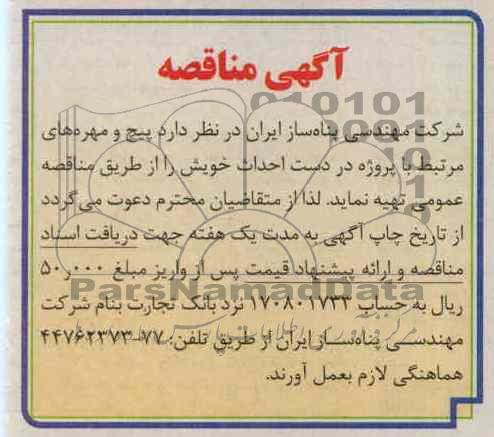 آگهی مناقصه
شرکت مهندسی پناه‌ساز ایران در نظر دارد پیچ و مهره‌های
مرتبط با پروژه در دست احداث خویش را از طریق مناقصه
عمومی تهیه نماید. لذا از متقاضیان محترم دعوت می‌گردد
از تاریخ چاپ آگهی به مدت یک هفته جهت دریافت اسناد
مناقصه و ارائه پیشنهاد قیمت پس از واریز مبلغ ۵۰ر۰۰۰
ریال به حساب ۱۷۰۸۰۱۷۳۳ نزد بانک تجارت بنام شرکت
مهندسی پناه‌ساز ایران از طریق تلفن: ۷۷-۴۴۷۶۲۳۷۳
هماهنگی لازم بعمل آورند.
ParsNamadData